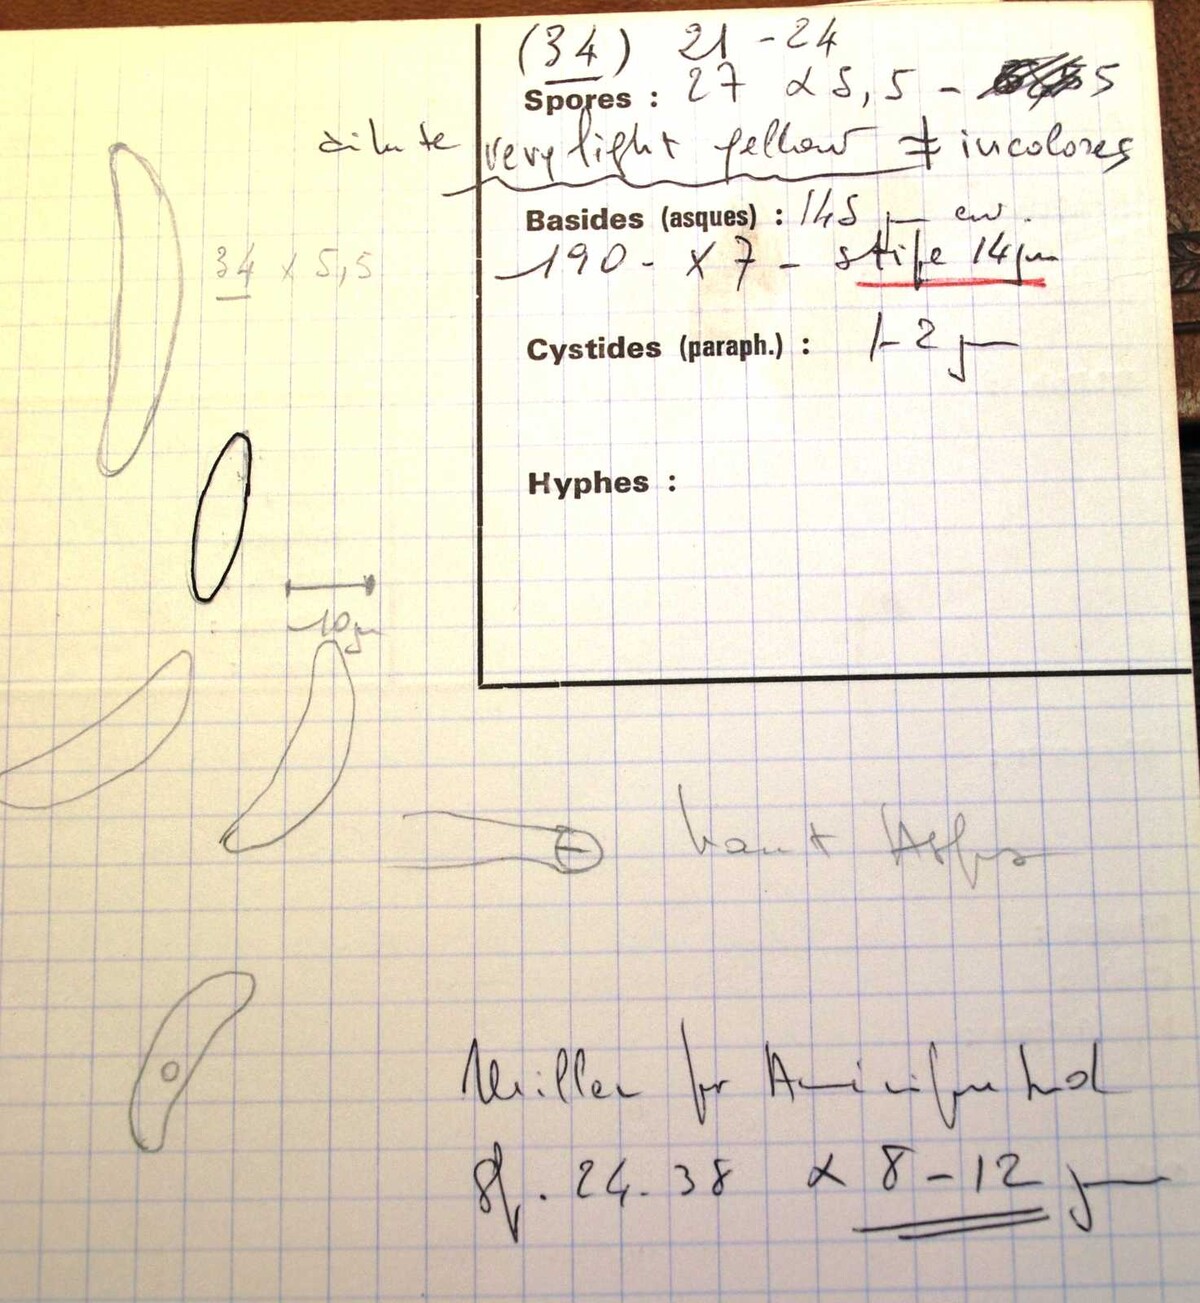 (34) 21 - 24
Spores : 27 x 5,5 - 5
dilute very light yellow ≠ incolores
Basides (asques) : 145 µ env.
190 - x 7 - stipe 14µm
34 x 5,5
Cystides (paraph.) : 1-2 µm
Hyphes :
10µm
haut
Miller for
sp. 24.38 x 8-12 µm